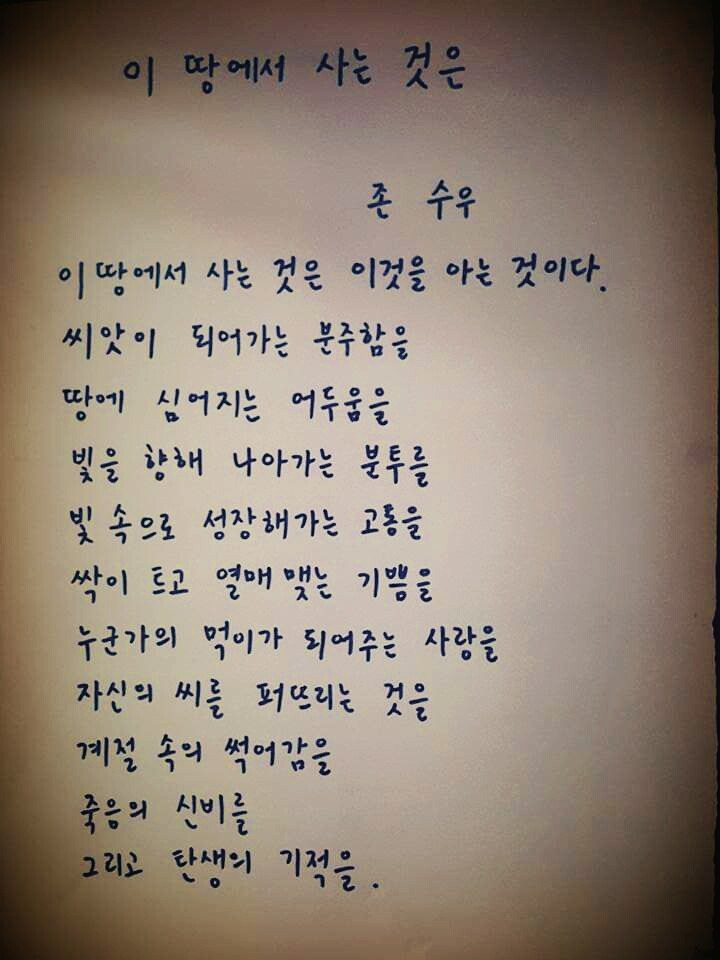 이 땅에서 사는 것은
존 수우
이 땅에서 사는 것은 이것을 아는 것이다.
씨앗이 되어가는 분주함을
땅에 심어지는 어두움을
빛을 향해 나아가는 분투를
빛 속으로 성장해가는 고통을
싹이 트고 열매 맺는 기쁨을
누군가의 먹이가 되어주는 사랑을
자신의 씨를 퍼뜨리는 것을
계절 속의 썩어감을
죽음의 신비를
그리고 탄생의 기적을.